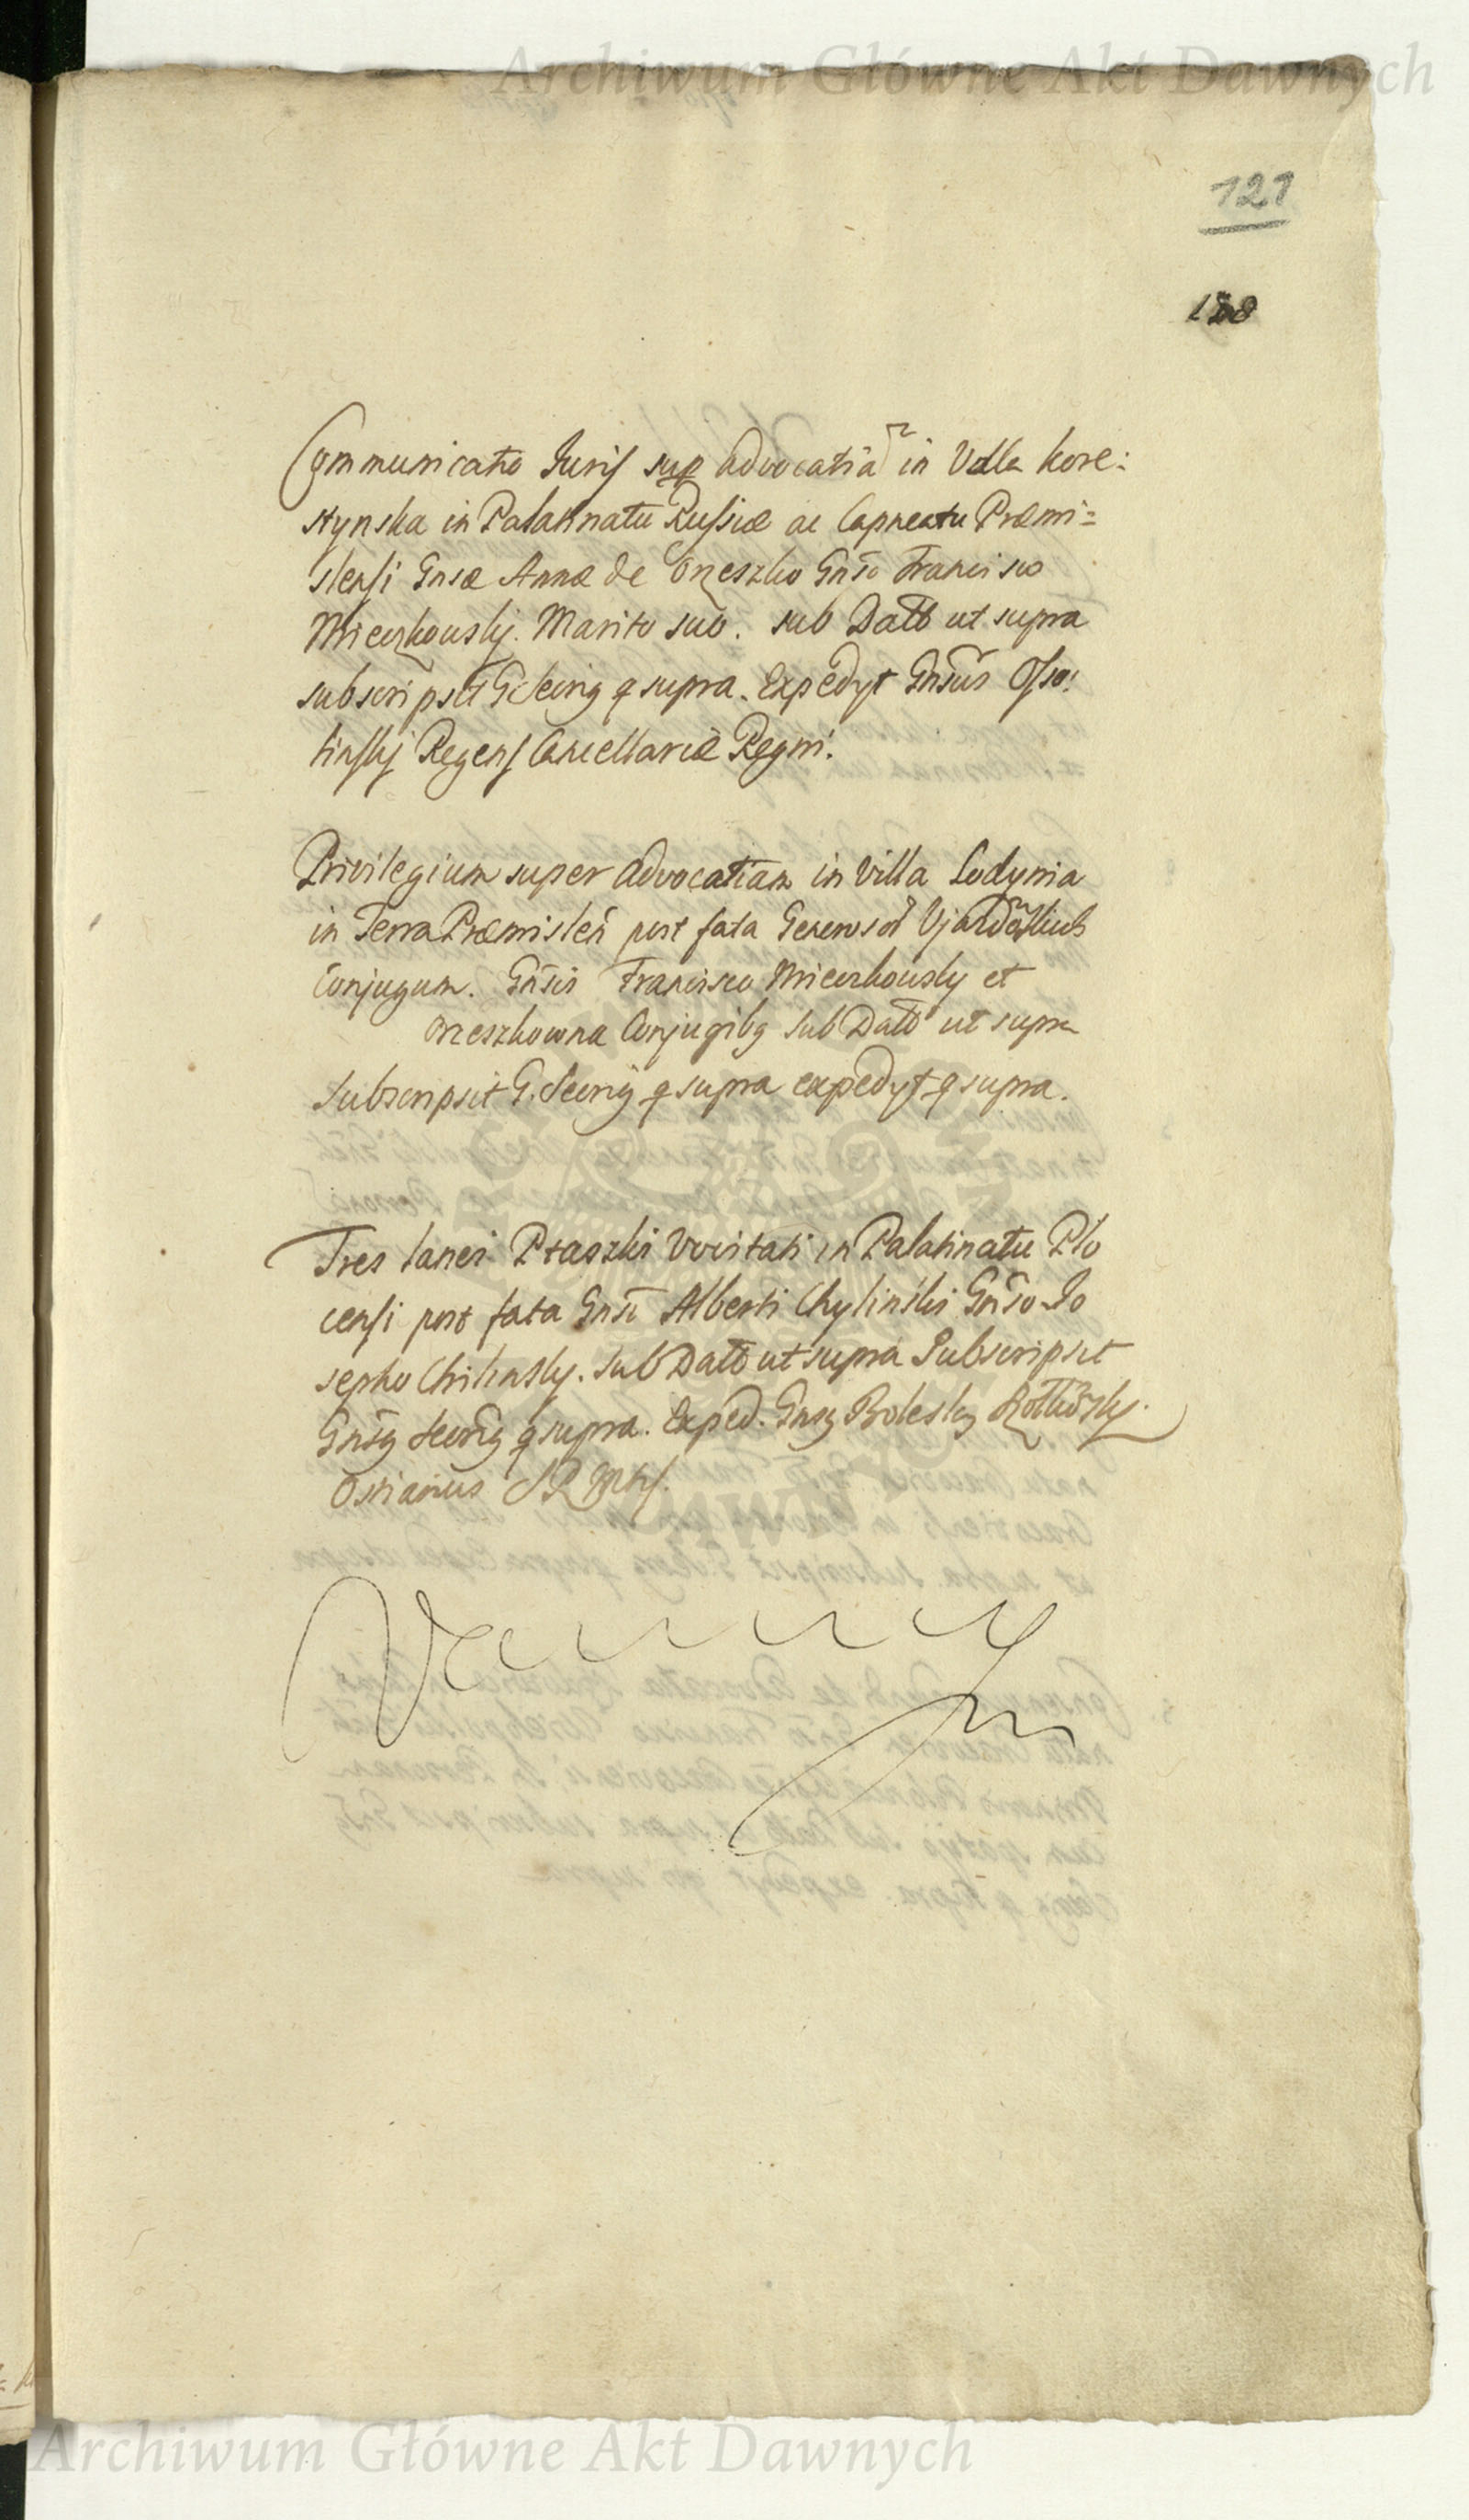 Archiwum Główne Akt Dawnych
121
Communicatio Juris sup advocatiā in Villa Kore:
stynska in Palatinatu Russiæ ac Capneatu Præmi=
slensi Gnsæ Annæ de Orzeszko Gnso Francisco
Mierzkowskj. Marito suo. sub Datō ut supra
subscripsit G Secrig q supra. Expedyt Gnsus Osso:
linskj Regens Cancellariæ Regni.
Privilegium super Advocatiam in Villa Lodynia
in Terra Præmislen̄ post fata Generosor̄
Conjugum. Gn̄sis Francisco Mierzkowsky et
Orzeszkowna Conjugibq sub Datō ut supra
Subscripsit G. Secrig q supra expedyt q supra.
Tres lanei Ptaszki Vocitati in Palatinatu Plo
censi post fata Gnsi Alberti Chylinski Gn̄so Jo
sepho Chilinsky. sub Datō ut supra Subscripsit
Gnsq Secrig q supra. Exped. Gnsq Bolesłq
Ostianus
Archiwum Główne Akt Dawnych